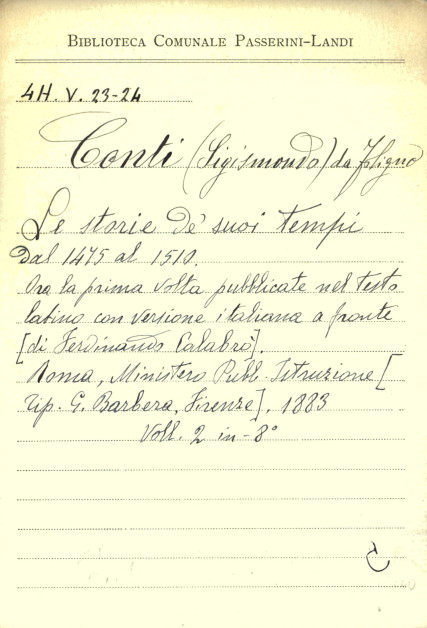 BIBLIOTECA COMUNALE PASSERINI-LANDI
4H. V. 23-24
Conti (Sigismondo) da Foligno
Le storie de' suoi tempi
Dal 1475 al 1510.
Ora la prima volta pubblicate nel testo
latino con versione italiana a fronte
[di Ferdinando Calabro].
Roma, Ministero Pubb. Istruzione [
Tip. G. Barbera, Firenze], 1883
Voll. 2 in-8°